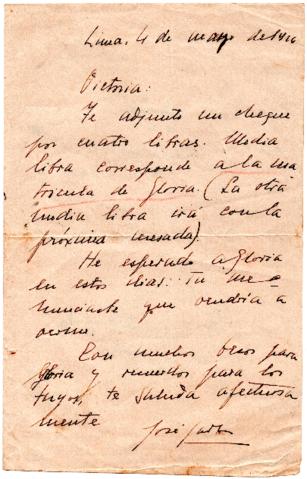 Lima, 4 de mayo de 1926
Victoria:
Te adjunto un cheque
por cuatro libras. Media
libra corresponde a la ma
trícula de Gloria. (La otra
media libra irá con la
próxima mesada).
He esperado a Gloria
en estos días. Tu me a-
nunciaste que vendría a
verme.
Con muchos besos para
Gloria y recuerdos para los
tuyos, te saluda afectuosa
mente
José Carlos